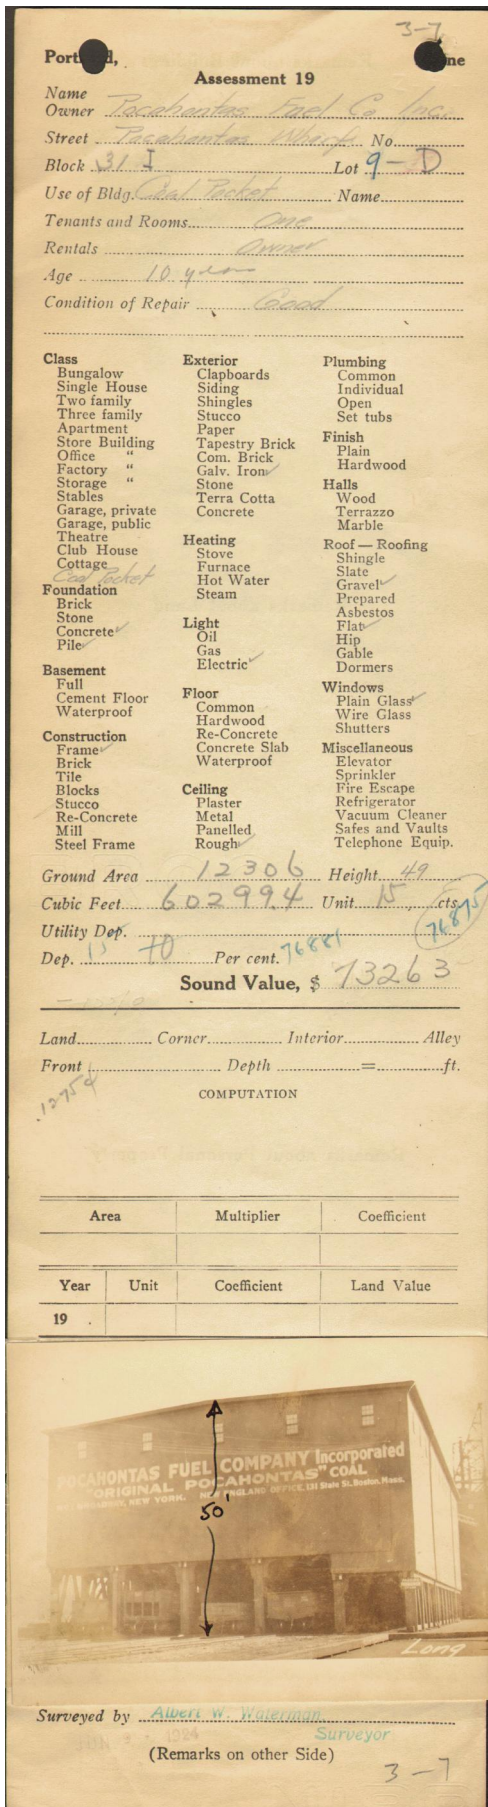 3-7
Portland, Maine
Assessment 19
Name
Owner Pocahontas Fuel Co Inc.
Street Pocahontas Wharf No.
Block 31 I Lot 9-D
Use of Bldg. Coal Pocket Name
Tenants and Rooms. one
Rentals owner
Age 10 years
Condition of Repair Good
Class
Bungalow
Single House
Two family
Three family
Apartment
Store Building
Office "
Factory "
Storage "
Stables
Garage, private
Garage, public
Theatre
Club House
Cottage
Coal Pocket
Foundation
Brick
Stone
Concrete ✓
Pile ✓
Basement
Full
Cement Floor
Waterproof
Construction
Frame ✓
Brick
Tile
Blocks
Stucco
Re-Concrete
Mill
Steel Frame
Exterior
Clapboards
Siding
Shingles
Stucco
Paper
Tapestry Brick
Com. Brick
Galv. Iron ✓
Stone
Terra Cotta
Concrete
Heating
Stove
Furnace
Hot Water
Steam
Light
Oil
Gas
Electric ✓
Floor
Common
Hardwood
Re-Concrete
Concrete Slab
Waterproof
Ceiling
Plaster
Metal
Panelled
Rough ✓
Plumbing
Common
Individual
Open
Set tubs
Finish
Plain
Hardwood
Halls
Wood
Terrazzo
Marble
Roof — Roofing
Shingle
Slate
Gravel ✓
Prepared
Asbestos
Flat ✓
Hip
Gable
Dormers
Windows
Plain Glass ✓
Wire Glass
Shutters
Miscellaneous
Elevator
Sprinkler
Fire Escape
Refrigerator
Vacuum Cleaner
Safes and Vaults
Telephone Equip.
Ground Area 12306 Height 49
Cubic Feet 602994 Unit 15, cts.
Utility Dep. 76875
Dep. 15 Per cent. 76881
Sound Value, $ 73263
Land Corner Interior Alley
Front Depth = ft.
12754
COMPUTATION
Area Multiplier Coefficient
Year Unit Coefficient Land Value
19 .
POCAHONTAS FUEL COMPANY Incorporated
"ORIGINAL POCAHONTAS" COAL
BROADWAY, NEW YORK. NEW ENGLAND OFFICE, 131 State St. Boston, Mass.
50'
Long
Surveyed by Albert W. Waterman
1924 Surveyor
(Remarks on other Side)
3-7